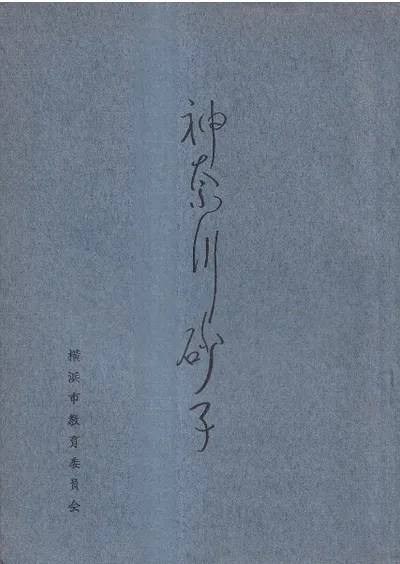 神奈川砂子
横浜市教育委員会